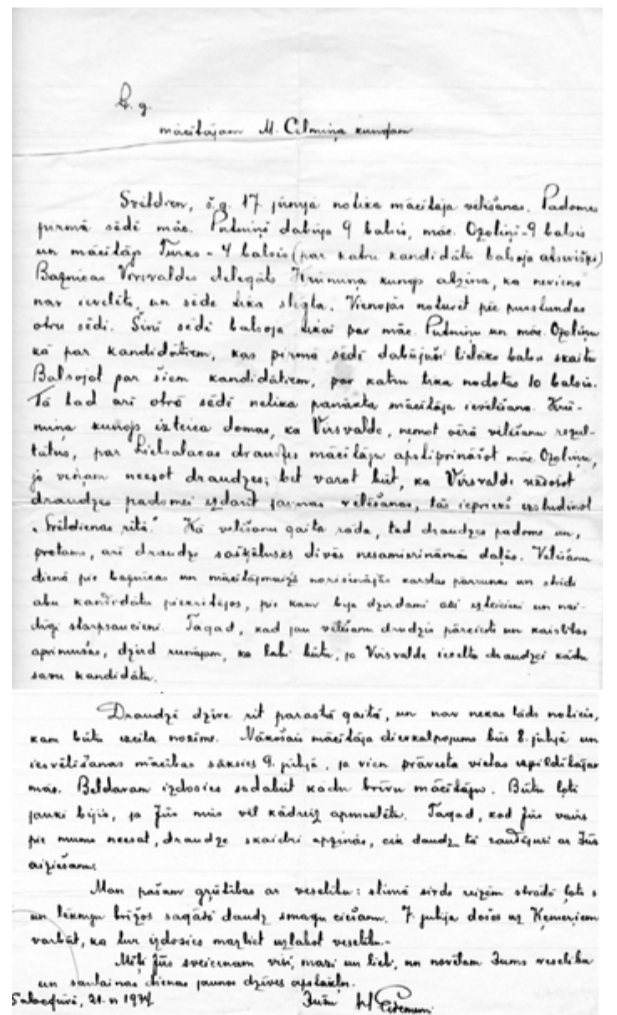 L. g.
mācītājam M. Celmiņa kungam
Svētdien, š.g. 17. jūnijā notika mācītāja vēlēšanas. Padomes
pirmā sēdē māc. Putniņš dabūja 9 balsis, māc. Ozoliņš - 9 balsis
un mācītājs Turks - 4 balsis (par katru kandidātu balsoja atsevišķi)
Baznīcas Virsvaldes delegāts kungs atzina, ka neviens
nav ievēlēts, un sēde tika slēgta. Vienojās noturēt pēc pusstundas
otru sēdi. Šinī sēdē balsoja tikai par māc. Putniņu un māc. Ozoliņu
kā par kandidātiem, kas pirmā sēdē dabūjuši lielāko balsu skaitu
Balsojot par šiem kandidātiem, par katru tika nodotas 10 balsis.
Tā tad arī otrā sēdē netika panākta mācītāja ievēlēšana. Krū-
miņa kungs izteica domas, ka Virsvalde, ņemot vērā vēlēšanu rezul-
tātus, par draudzes mācītāju apstiprināšot māc. Ozoliņu,
jo viņam neesot draudzes; bet varot būt, ka Virsvalde uzdošot
draudzes padomei izdarīt jaunas vēlēšanas, tās iepriekš izsludinot
„Svētdienas rītā.” Kā vēlēšanu gaita rāda, tad draudzes padome un,
protams, arī draudze sašķēlusies divās nesamierināmās daļās. Vēlēšanu
dienā pie baznīcas un mācītājmuižā norisinājās karstas pārrunas un strīdi
abu kandidātu piekritējos, pie kam bija dzirdami asi izteicieni un nai-
dīgi starpsaucieni. Tagad, kad jau vēlēšanu drudzis pārciests un kaislības
aprimušas, dzird runājam, ka labi būtu, ja Virsvalde ieceltu draudzei kādu
savu kandidātu.
Draudzē dzīve rit parastā gaitā, un nav nekas tāds noticis,
kam būtu izcila nozīme. Nākošais mācītāja dievkalpojums būs 8. jūlijā un
iesvētīšanas mācības sāksies 9. jūlijā, ja vien prāvesta vietas izpildītājam
mās. Beldavam izdosies sadabūt kādu brīvu mācītāju. Būtu ļoti
jauki bijis, ja Jūs mūs vēl kādreiz apmeklētu. Tagad, kad Jūs vairs
pie mums neesat, draudze skaidri apzinās, cik daudz tā zaudējusi ar Jūsu
aiziešanu.
Man pašam grūtības ar veselību: slimā sirds reizēm strādā ļoti
un lēkmju brīžos sagādā daudz smagu ciešanu. 7 jūlijā došos uz Ķemeriem
varbūt, ka tur izdosies mazliet uzlabot veselību.-
Mēs Jūs sveicinam visi, mazi un lieli, un novēlam Jums veselību
un saulainas dienas jaunos dzīves apstākļos.
21. VI 1934. Jūsu